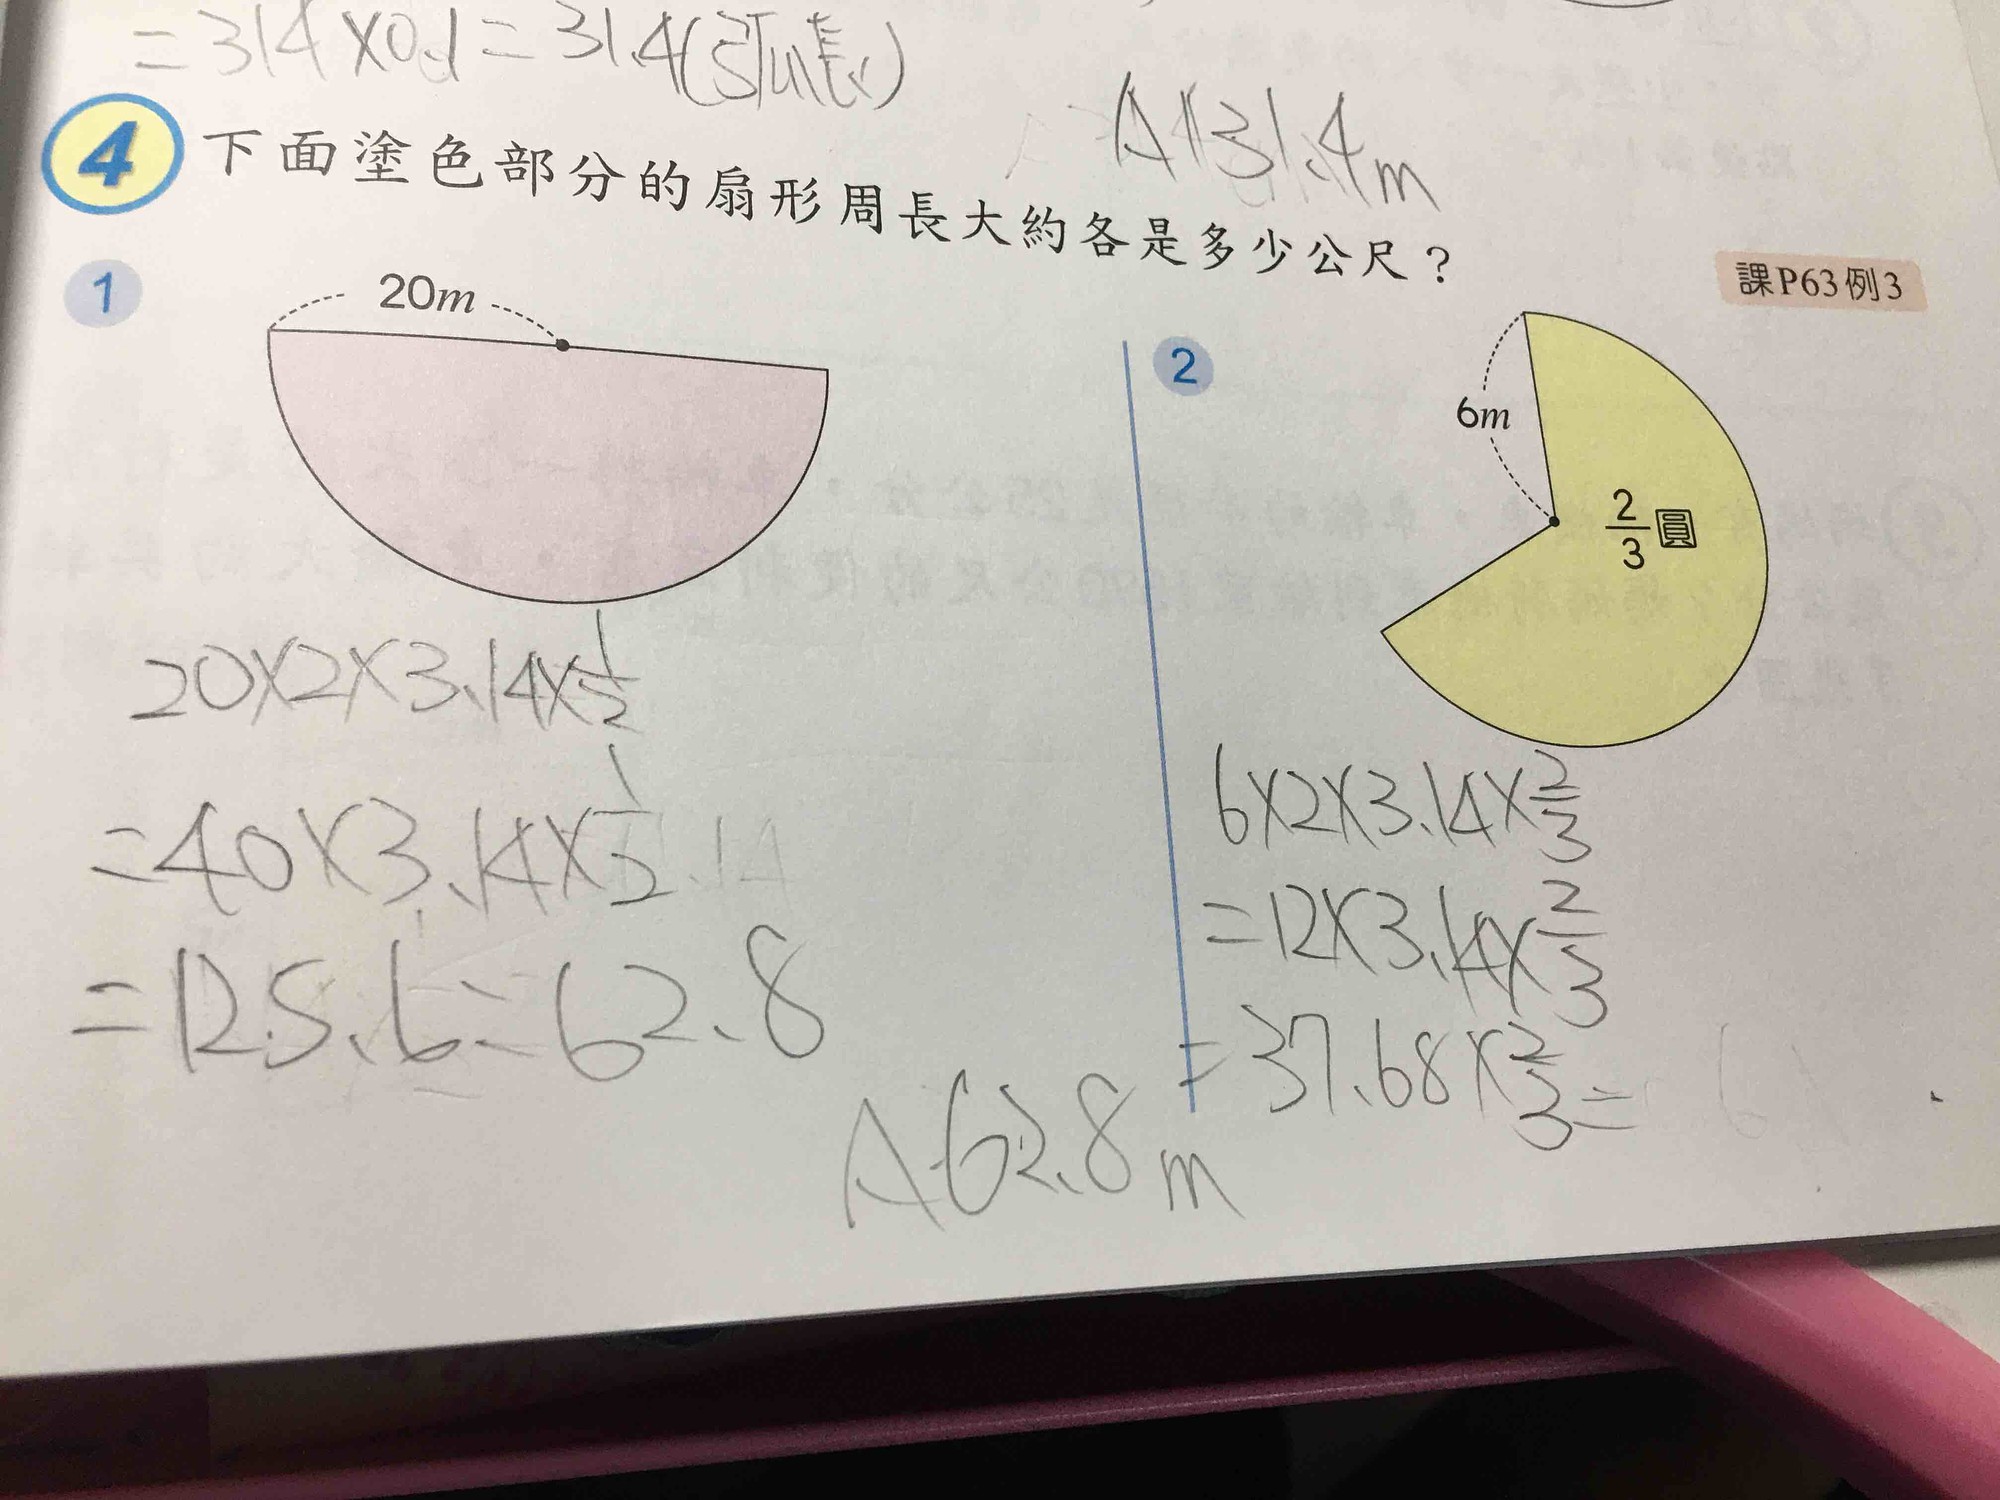 =314×0.1=31.4(弧長)
A:31.4m
4 下面塗色部分的扇形周長大約各是多少公尺?
課P63例3
1
20m
20×2×3.14×1/2
=40×3.14×1/2
=125.6=62.8
A:62.8m
2
6m
2/3圓
6×2×3.14×2/3
=12×3.14×2/3
=37.68×2/3=